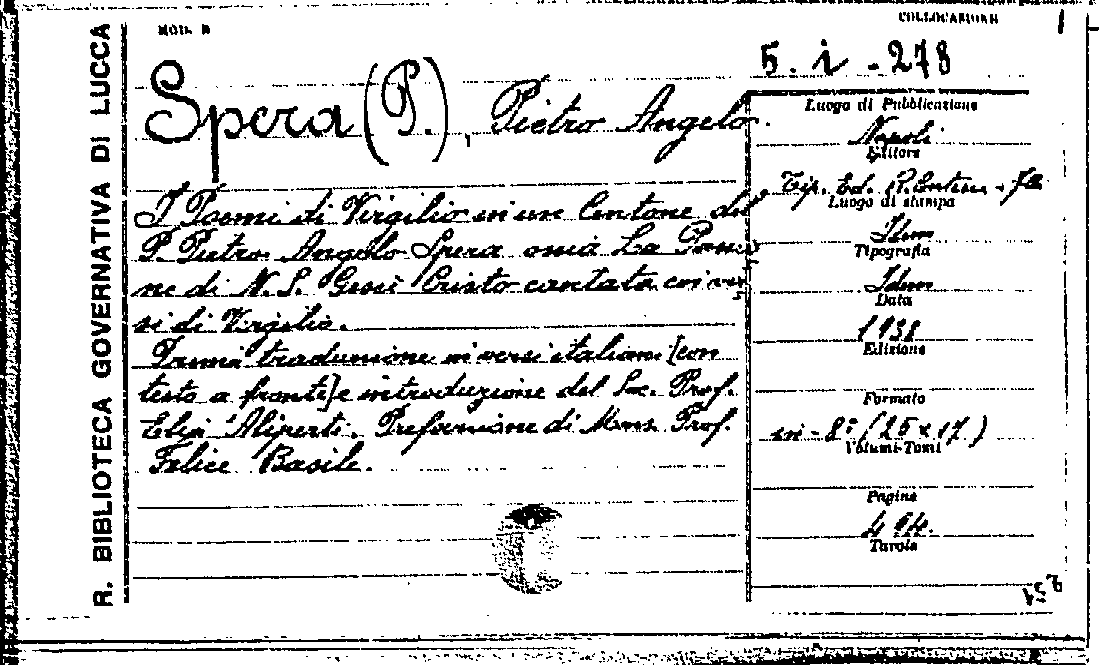 R. BIBLIOTECA GOVERNATIVA DI LUCCA
MOD. B
COLLOCAZIONE
5. i - 278
Spera (P.), Pietro Angelo.
I Poemi di Virgilio in un Centone del
P. Pietro Angelo Spera ossia La Passio
ne di N. S. Gesù Cristo cantata coi ver
si di Virgilio.
Prima traduzione in versi italiani [con
testo a fronte] e introduzione del Sac. Prof.
Aliperti. Prefazione di Mons. Prof.
Felice Basile.
Luogo di Pubblicazione
Napoli
Editore
Tip. Ed.
Luogo di stampa
Idem
Tipografia
Idem
Data
1938
Edizione
Formato
in - 8° (25 x 17)
Volumi-Tomi
Pagine
494.
Tavole